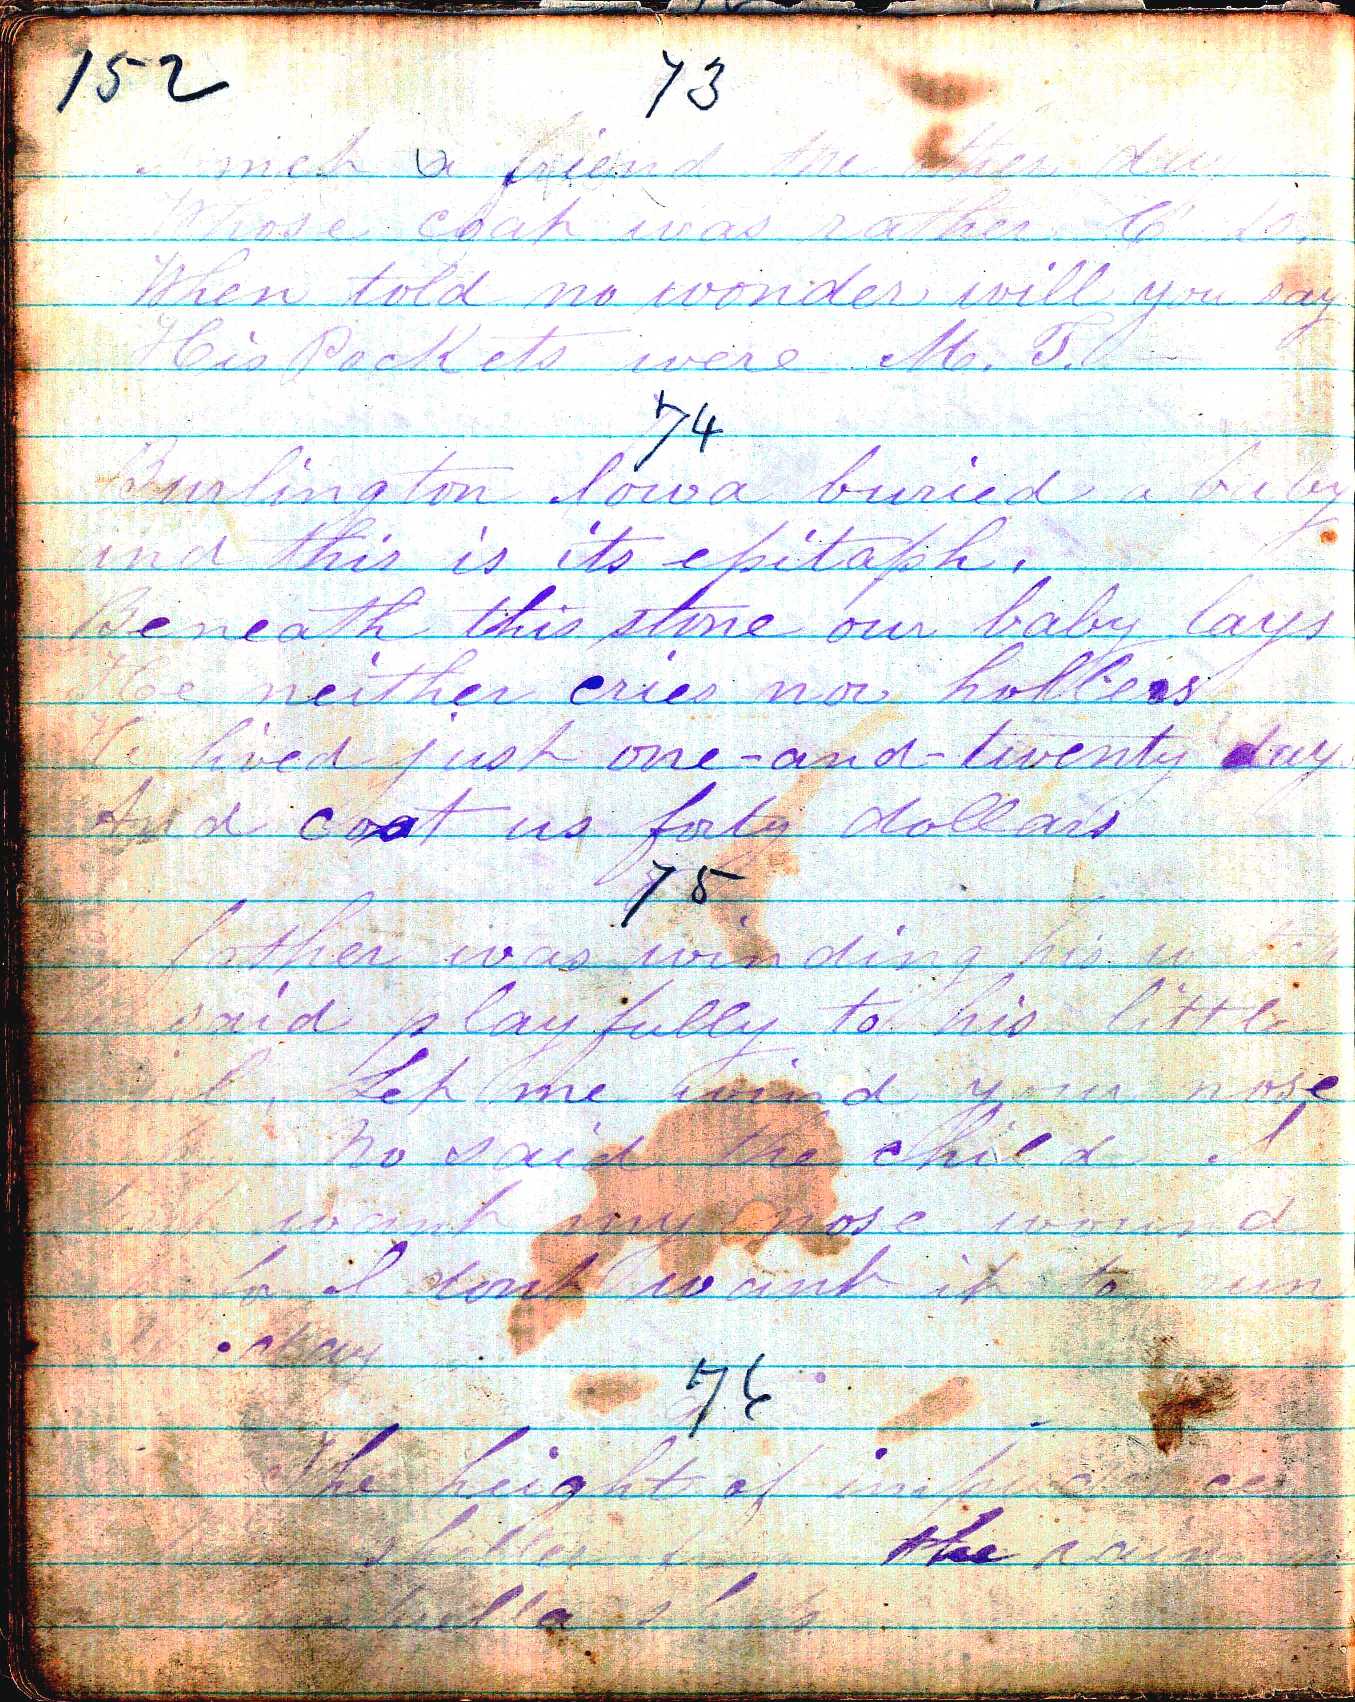 152 73
I met a friend the other day
Whose coat was rather
When told no wonder will you say
His Pockets were M. T.
74
Burlington Iowa buried a baby
and this is its epitaph.
Beneath this stone our baby lays
He neither cries nor hollers
He lived just one-and-twenty day
And cost us forty dollars
75
father was winding his
said playfully to his little
Let me wind your nose
No said the child I
want my nose wound
I dont want it to run
76
The height of
shelter the rain